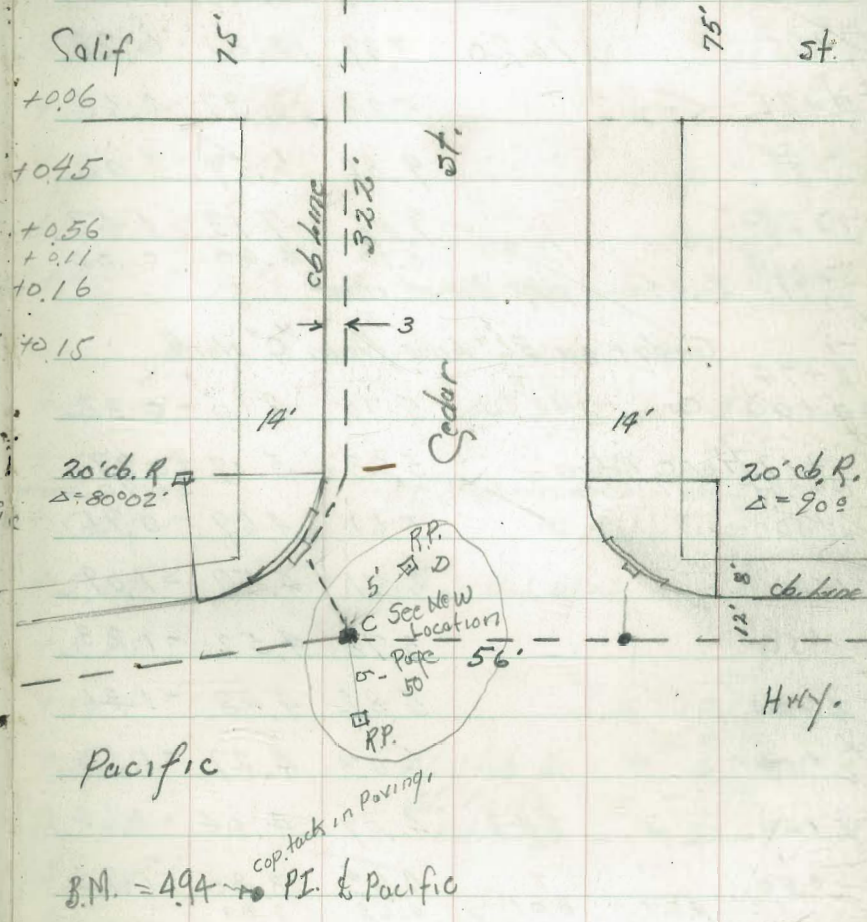 Salif 75' 75' st.
+0.06
+0.45
+0.56
+0.11
+0.16
+0.15
cb line
322'
st.
3
Cedar
14' 14'
20' cb. R
Δ=80°02'
20' cb. R.
Δ=90°
R.P.
D
5'
C See New
Location
Page
50
5'
R.P.
56'
8'
12'
cb. line
Hwy.
Pacific
cop. tack in Paving.
B.M. = 4.94 P.I. ℄ Pacific